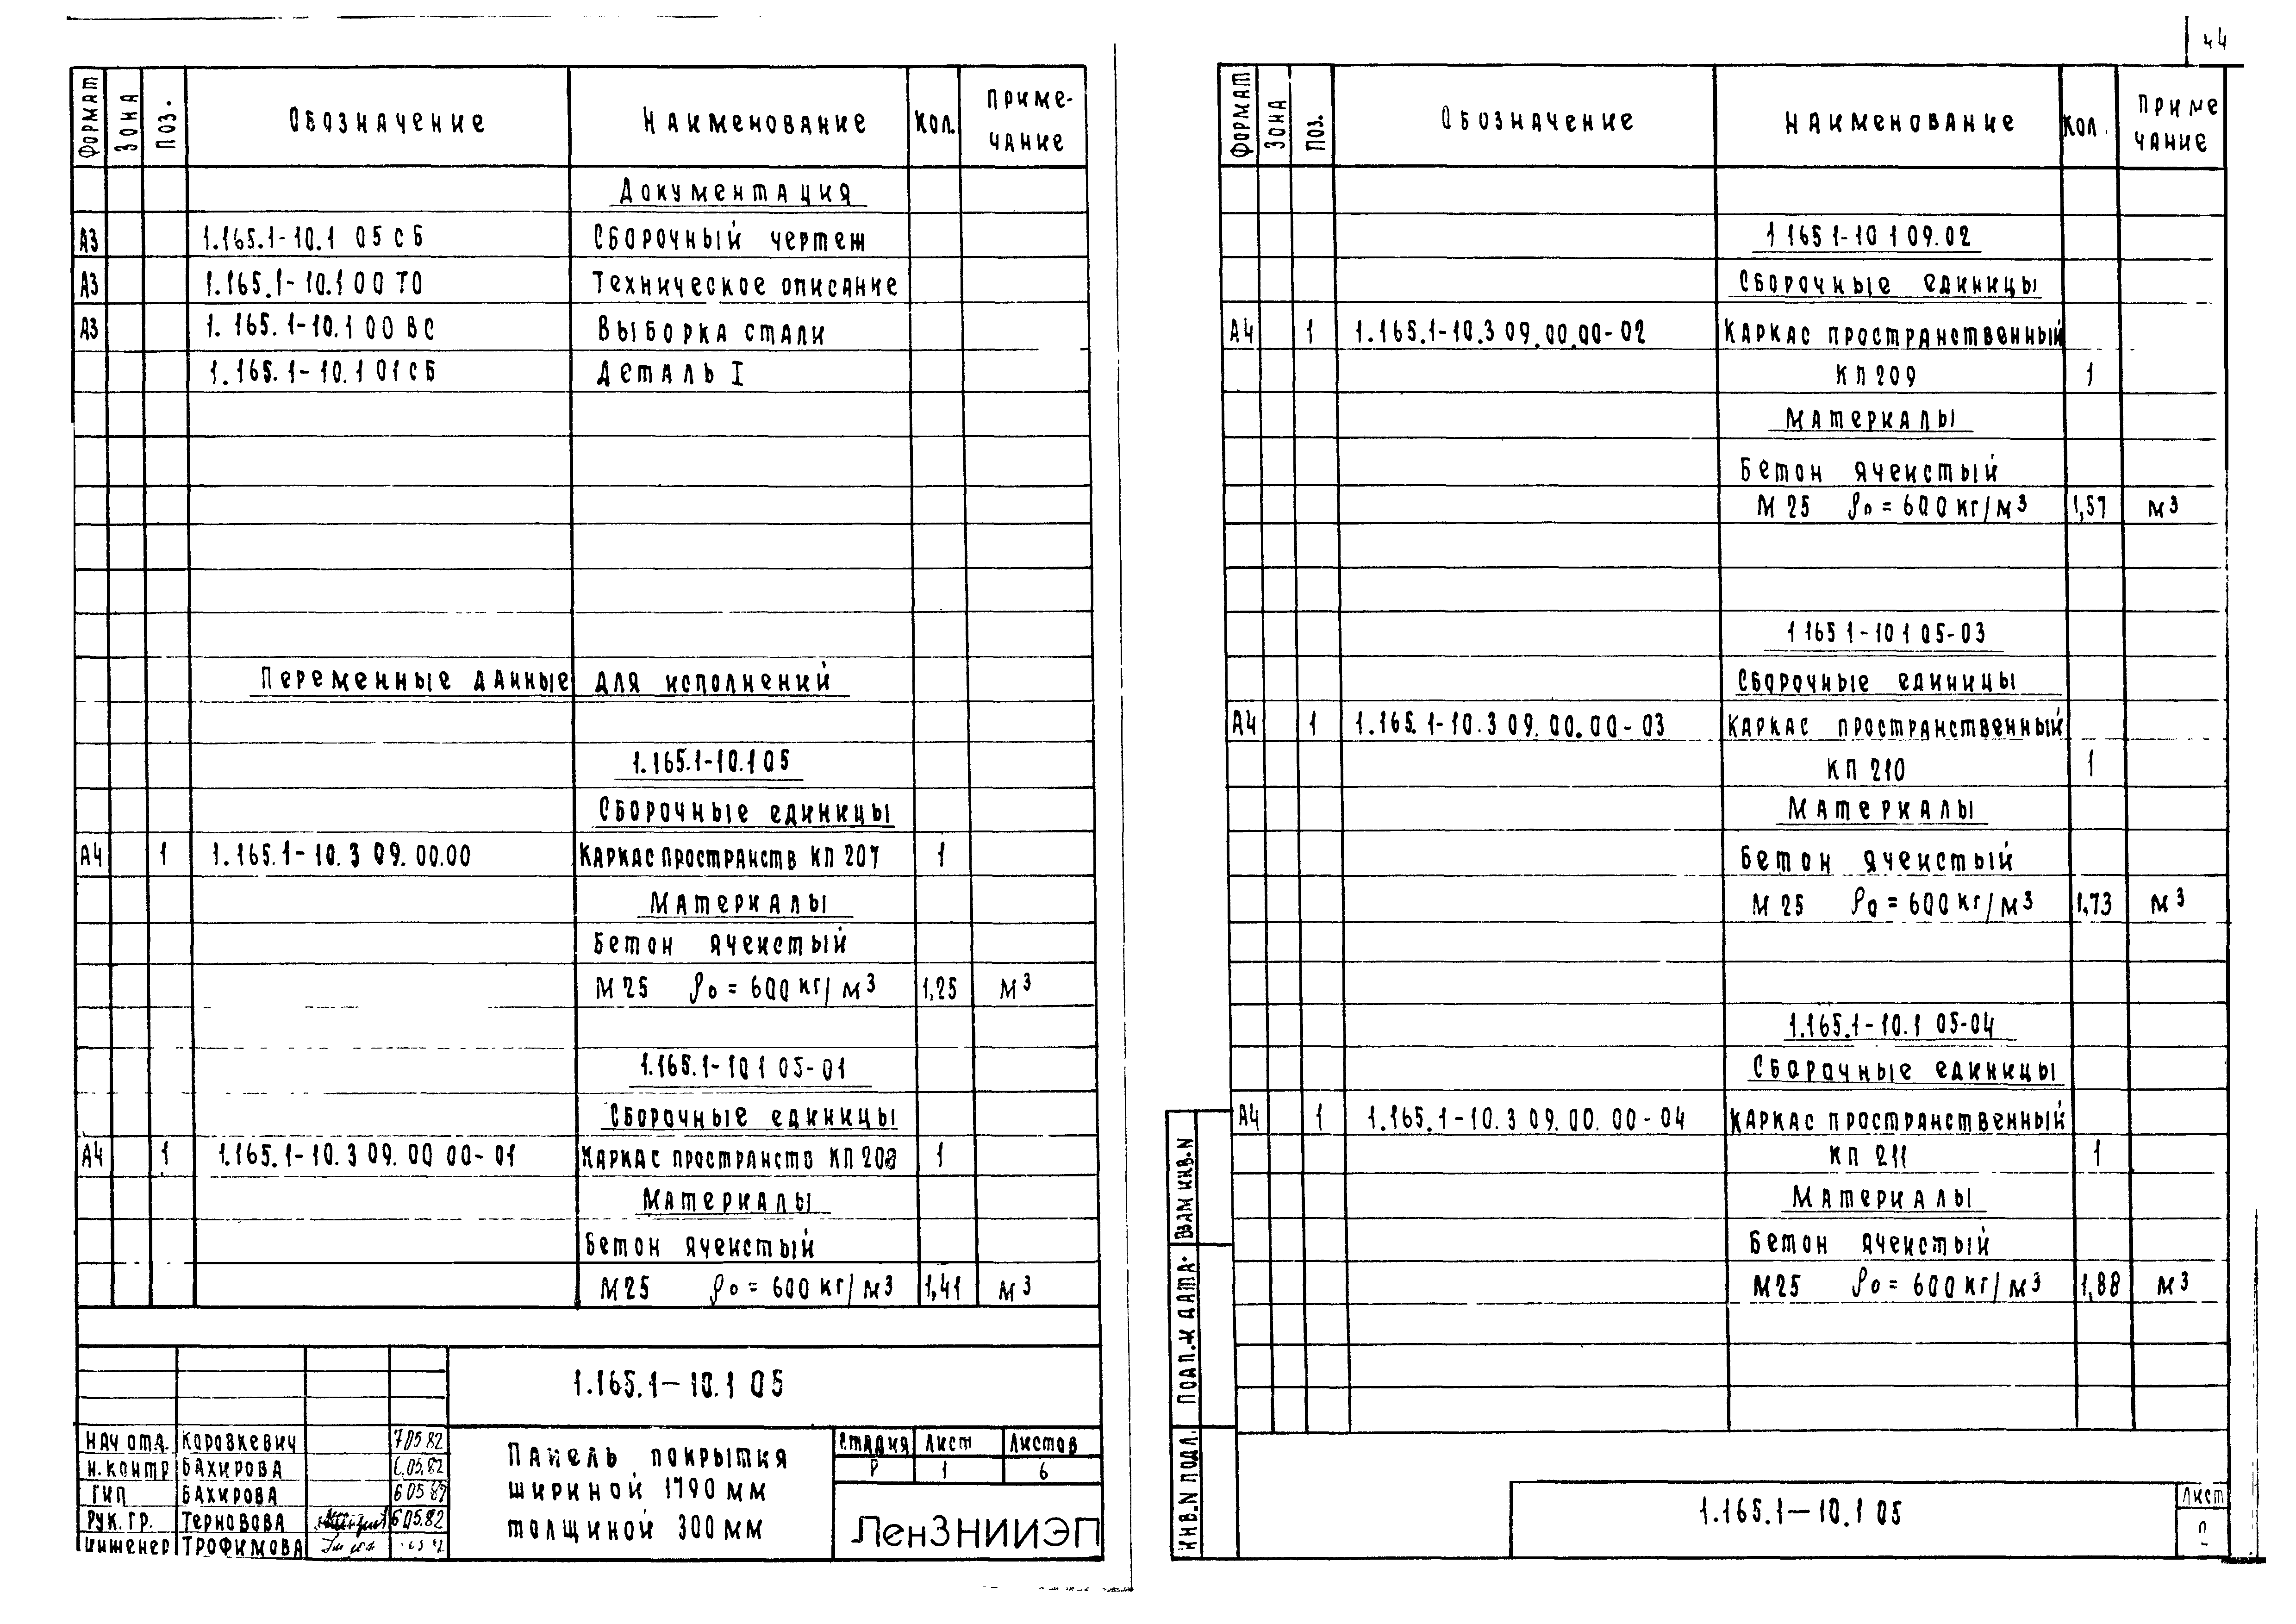 44
Формат Зона Поз. Обозначение Наименование Кол. Приме-
чание
Документация
А3 1.165.1-10.1 05 СБ Сборочный чертеж
А3 1.165.1-10.1 00 ТО Техническое описание
А3 1.165.1-10.1 00 ВС Выборка стали
1.165.1-10.1 01 СБ Деталь I
Переменные данные для исполнений
1.165.1-10.1 05
Сборочные единицы
А4 1 1.165.1-10.3 09.00.00 Каркас пространств КП 207 1
Материалы
Бетон ячеистый
М25 ρ₀ = 600 кг/м³ 1,25 м³
1.165.1-10 1 05-01
Сборочные единицы
А4 1 1.165.1-10.3 09.00 00-01 Каркас пространств КП 208 1
Материалы
Бетон ячеистый
М25 ρ₀ = 600 кг/м³ 1,41 м³
1.165.1-10.1 05
Нач отд. Каравкевич 7.05.82
Н.контр Бахирова 6.05.82
ГИП Бахирова 6 05 82
Рук. гр. Терновова 6.05.82
Инженер Трофимова
Панель покрытия
шириной 1790 мм
толщиной 300 мм
Стадия Лист Листов
Р 1 6
ЛенЗНИИЭП
Формат Зона Поз. Обозначение Наименование Кол. Приме
чание
1 165 1-10 1 09.02
Сборочные единицы
А4 1 1.165.1-10.3 09.00.00-02 Каркас пространственный
КП 209 1
Материалы
Бетон ячеистый
М 25 ρ₀ = 600 кг/м³ 1,57 м³
1 165 1-10 1 05-03
Сборочные единицы
А4 1 1.165.1-10.3 09.00.00-03 Каркас пространственный
КП 210 1
Материалы
Бетон ячеистый
М 25 ρ₀ = 600 кг/м³ 1,73 м³
1.165.1-10.1 05-04
Сборочные единицы
А4 1 1.165.1-10.3 09.00.00-04 Каркас пространственный
КП 211 1
Материалы
Бетон ячеистый
М25 ρ₀ = 600 кг/м³ 1,88 м³
Взам инв. N
Подп. и дата
Инв. N подл.
1.165.1-10.1 05
Лист
2